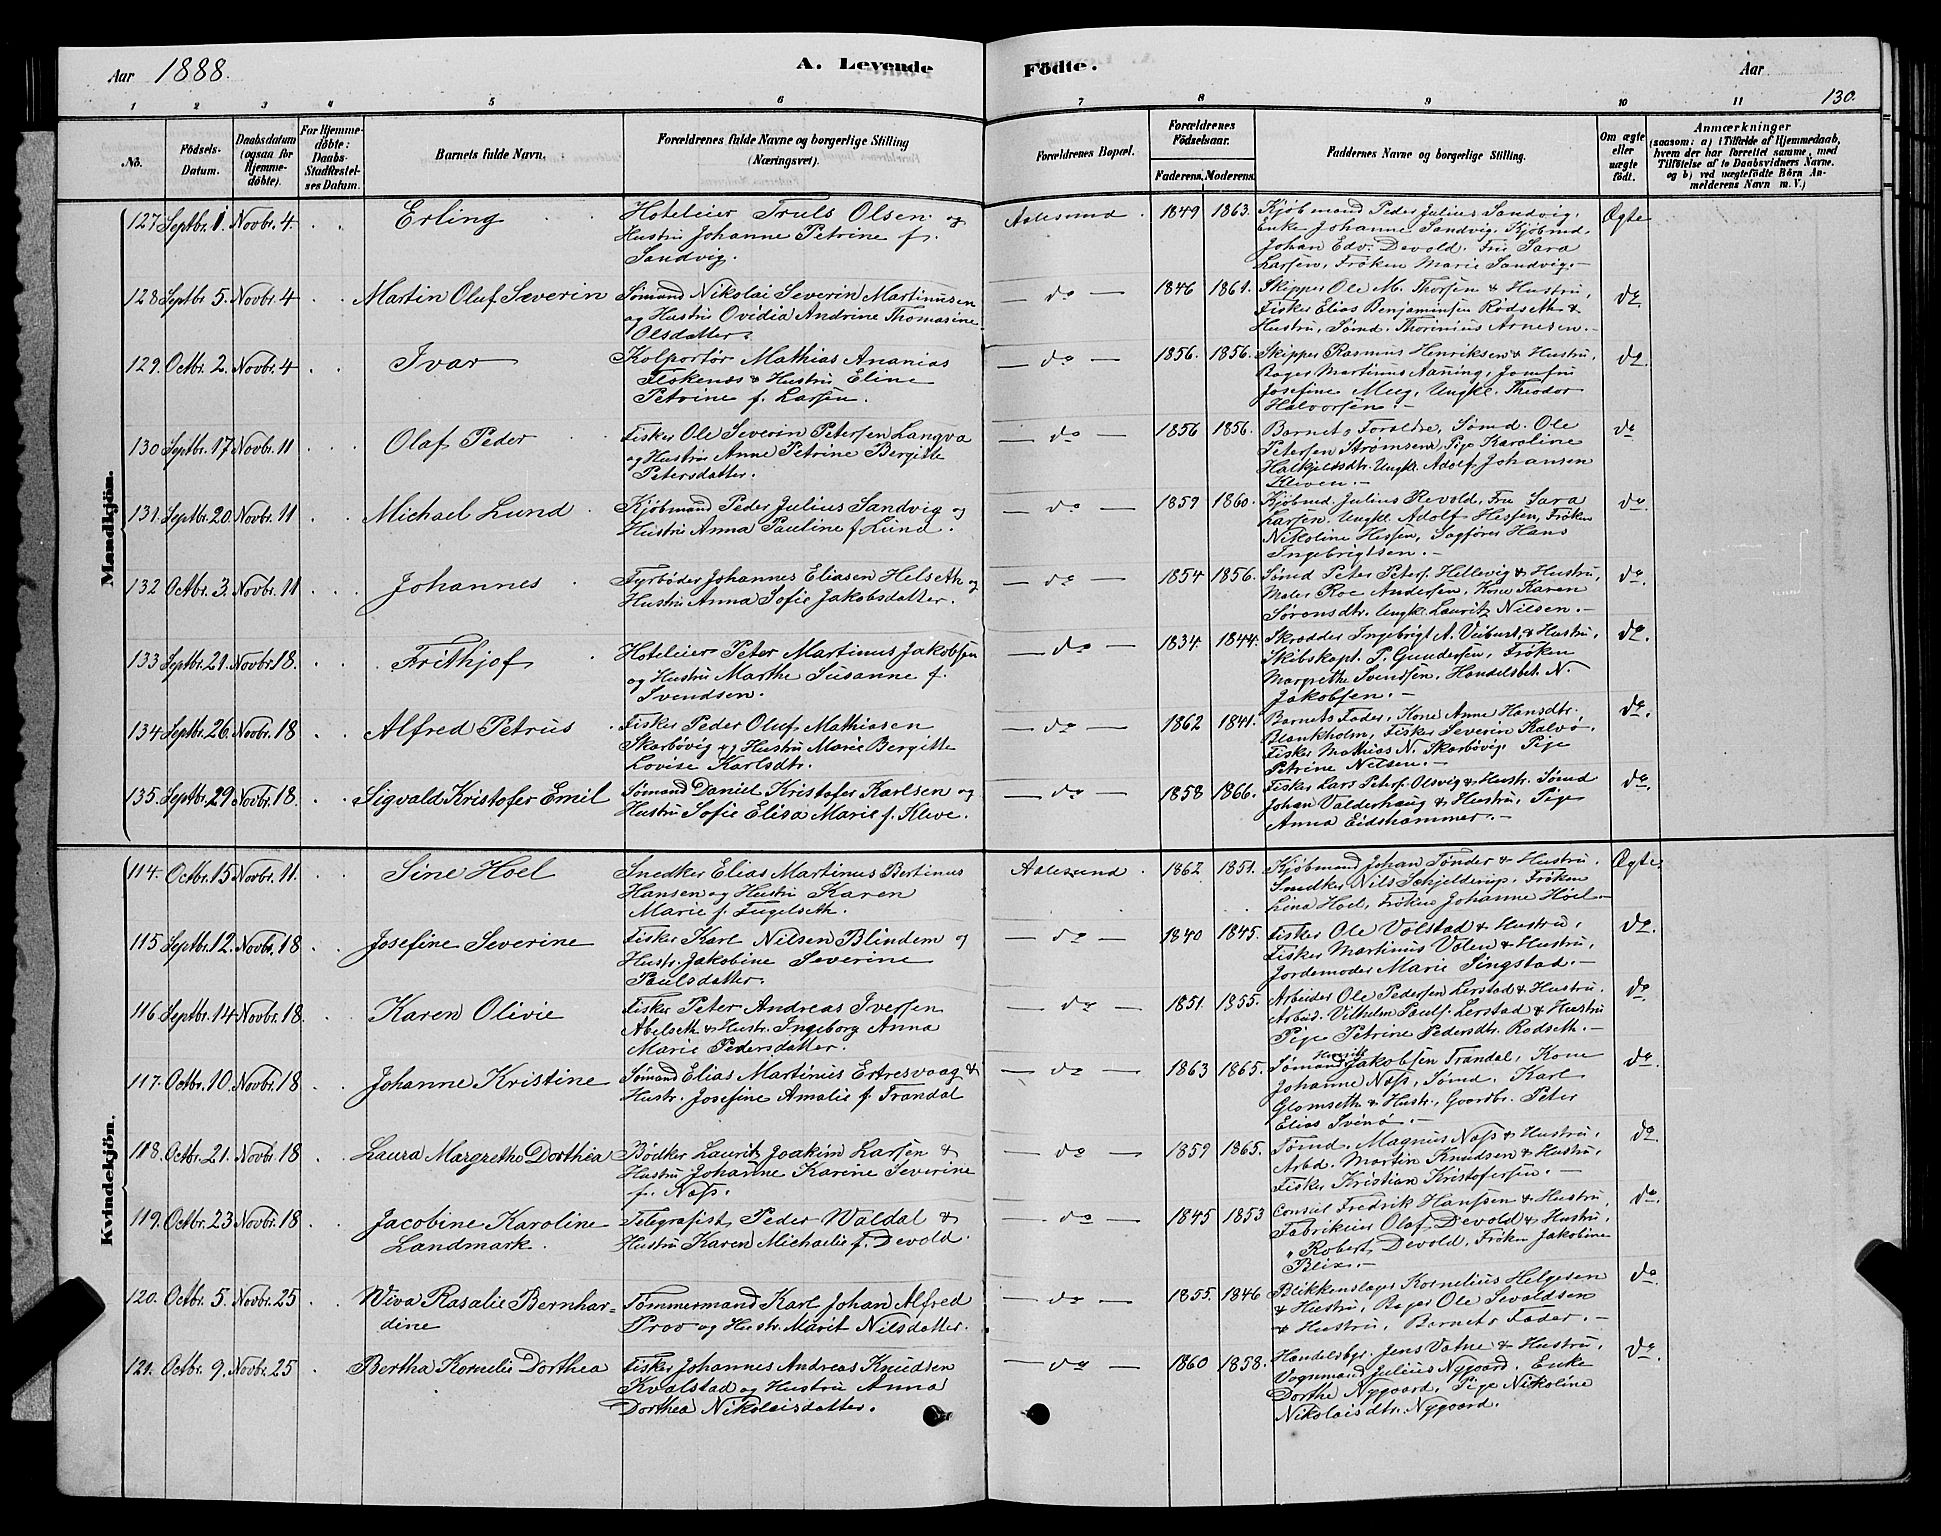 Aar 1888.
A. Levende Födte.
Aar
130.
1 2 3 4 5 6 7 8 9 10 11
No.
Födsels-Datum.
Daabsdatum (ogsaa for Hjemme-döbte).
For Hjemme-döbte: Daabs-Stadfæstel-ses Datum.
Barnets fulde Navn.
Forældrenes fulde Navne og borgerlige Stilling (Næringsvei).
Forældrenes Bopæl.
Forældrenes Födselsaar.
Faderens. Moderens.
Faddernes Navne og borgerlige Stilling.
Om ægte eller uægte födt.
Anmærkninger
(saasom: a) i Tilfælde af Hjemmedaab, hvem der har forrettet samme, med Tilföielse af to Daabsvidners Navne. og b) ved uægtefödte Börn An-melderens Navn m. V.)
Mandkjön.
127 Septbr. 1. Novbr. 4. Erling
Hoteleier Truls Olsen og
Hustru Johanne Petrine f.
Sandvig.
Aalesund. 1849 1863.
Kjøbmand Peder Julius Sandvig,
Enke Johanne Sandvig, Kjøbmd.
Johan Edv. Devold. Frue Sara
Larsen, Frøken Marie Sandvig.-
Ægte
128 Septbr. 5. Novbr. 4 Martin Oluf Severin
Sømand Nikolai Severin Martinusen
og Hustru Ovidia Andrine Thomasine
Olsdatter.
do 1846 1861.
Skipper Ole M. Thorsen & Hustru,
Fisker Elias Benjaminsen Rødseth &
Hustru, Sømd. Thorinius Arnesen.-
do
129. Octbr. 2. Novbr. 4 Ivar
Kolportør Mathias Ananias
Flskenes & Hustru Eline
Petrine f. Larsen.
do 1856. 1856.
Skipper Rasmus Henriksen & Hustru,
Bager Martinus Aaning, Jomfru
Josefine Myg, Ungkl. Theodor
Halvorsen.-
do
130 Septbr. 17 Novbr. 11 Olaf Peder
Fisker Ole Severin Petersen Langva
og Hustru Anne Petrine Bergitte
Petersdatter.
do 1856 1856.
Barnets Foreldre, Sømd. Ole
Petersen Strømsen, Pige Karoline
Halkjelsdtr. Ungkl. Adolf Johansen
Kleven.-
do
131. Septbr. 20 Novbr. 11 Michael Lund
Kjøbmand Peder Julius Sandvig og
Hustru Anna Pauline f. Lund.
do 1859 1860.
Kjøbmd. Julius Devold, Fru Sara
Larsen. Ungkl. Adolf Hessen, Frøken
Nikoline Hessen, Sagfører Hans
Ingebrigtsen.-
do
132 Octbr. 3. Novbr. 11 Johannes
Fyrbøder Johannes Eliasen Helseth og
Hustru Anna Sofie Jakobsdatter.
do 1854 1856.
Sømd Peter Peters. Hellevig & Hustru,
Maler Roe Andersen, Kone Karen
Sørensdtr. Ungkl. Lauritz Nilsen.-
do
133 Septbr. 21. Novbr. 18. Frithjof
Hoteleier Peter Martinus Jakobsen
og Hustru Marthe Susanne f.
Svendsen.
do 1834 1844.
Skrædder Ingebrigt A. Veibust, & Hustru,
Skibskapt. P. Gundersen, Frøken
Margrethe Svendsen, Handelsbet. N.
Jakobsen.-
do
134 Septbr. 26. Novbr. 18 Alfred Petrus
Fisker Peder Oluf Mathiasen
Skarbøvig og Hustru Marie Bergitte
Lovise Karlsdtr.
do 1862 1841.
Barnets Fader, Kone Anne Hansdtr.
Blankholm, Fisker Severin Kalvø.
Fisker Mathias N. Skarbøvig, Pige
Petrine Nilsen.-
do
135. Septbr. 29 Novbr. 18. Sigvald Kristofer Emil
Sømand Daniel Kristofer Karlsen og
Hustru Sofie Elisa Marie f. Kleve.
do 1858 1866.
Fisker Lars Peters. Olsvig & Hustr. Sømd
Johan Valderhaug & Hustru, Pige
Anna Eidshammer.-
do
Kvindekjön.
114. Octbr. 15 Novbr. 11. Sine Hoel
Snedker Elias Martinus Bertinus
Hansen og Hustru Karen
Marie f. Fugelseth.
Aalesund. 1862 1851.
Kjøbmand Johan Tønder & Hustru.
Snedker Nils Schjelderup, Frøken
Lina Hoel, Frøken Johanne Hoel.
Ægte
115 Septbr. 12. Novbr. 18 Josefine Severine
Fisker Karl Nilsen Blindem og
Hustr. Jakobine Severine
Paulsdatter.
do 1840 1845.
Fisker Ole Volstad & Hustru,
Fisker Martinus Volen & Hustru,
Jordemoder Marie Singstad.-
do
116 Septbr. 14 Novbr. 18. Karen Olivie
Fisker Peter Andreas Iversen
Abelseth & Hustr. Ingeborg Anna
Marie Pedersdatter.
do 1851 1855.
Arbeider Ole Pedersen Lerstad & Hustru.
Arbeid. Vilhelm Pauls. Lerstad & Hustru
Pige Petrine Pedersdtr. Rødseth.-
do
117. Octbr. 10. Novbr. 18 Johanne Kristine
Sømand Elias Martinus Ertresvaag &
Hustr. Josefine Amalie f. Trandal
do 1863 1865.
Sømand Jakobsen Trandal, Kone
Johanne Næss, Sømd. Karl
Glomseth & Hustr., Gaardbr. Peter
Elias Svinø.-
do
118. Octbr. 21. Novbr. 18 Laura Margrethe Dorthea
Bødker Lauritz Joakim Larsen &
Hustru Johanne Karine Severine
f. Næss.
do 1859 1865.
Sømd. Magnus Næss & Hustru,
Arbd. Martin Knudsen & Hustru,
Fisker Kristian Kristofersen.-
do
119. Octbr. 23 Novbr. 18 Jacobine Karoline
Landmark.
Telegrafist Peder Waldal &
Hustru Karen Michaelie f. Devold.
do 1845 1853
Consul Fredrik Hanssen & Hustru,
Fabrikeier Olaf Devold & Hustru,
" Robert Devold, Frøken Jakobine
Blix.-
do
120. Octbr. 5. Novbr. 25 Wiva Rasalie Bernhar-
dine
Tømmermand Karl Johan Alfred
Prov og Hustr. Marit Nilsdatter.
do 1855. 1846
Blikkenslager Kornelius Helgesen
& Hustru, Bager Ole Sevaldsen
& Hustru, Barnets Fader.-
do
121. Octbr. 9. Novbr. 25 Bertha Kornelie Dorthea
Fisker Johannes Andreas Knudsen
Kvalstad og Hustru Anna
Dorthea Nikolaisdatter.
do 1860 1858.
Handelsbgr. Jens Vatne & Hustru,
Vognmand Julius Nygaard, Enke
Dorthe Nygaard, Pige Nikoline
Nikolaisdtr. Nygaard.
do